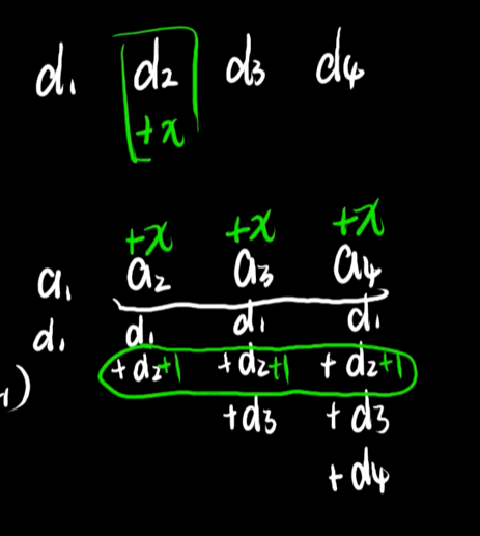 d₁ d₂ d₃ d₄
+x
+x +x +x
a₁ a₂ a₃ a₄
d₁ d₁ d₁ d₁
+d₂+1 +d₂+1 +d₂+1
)
+d₃ +d₃
+d₄